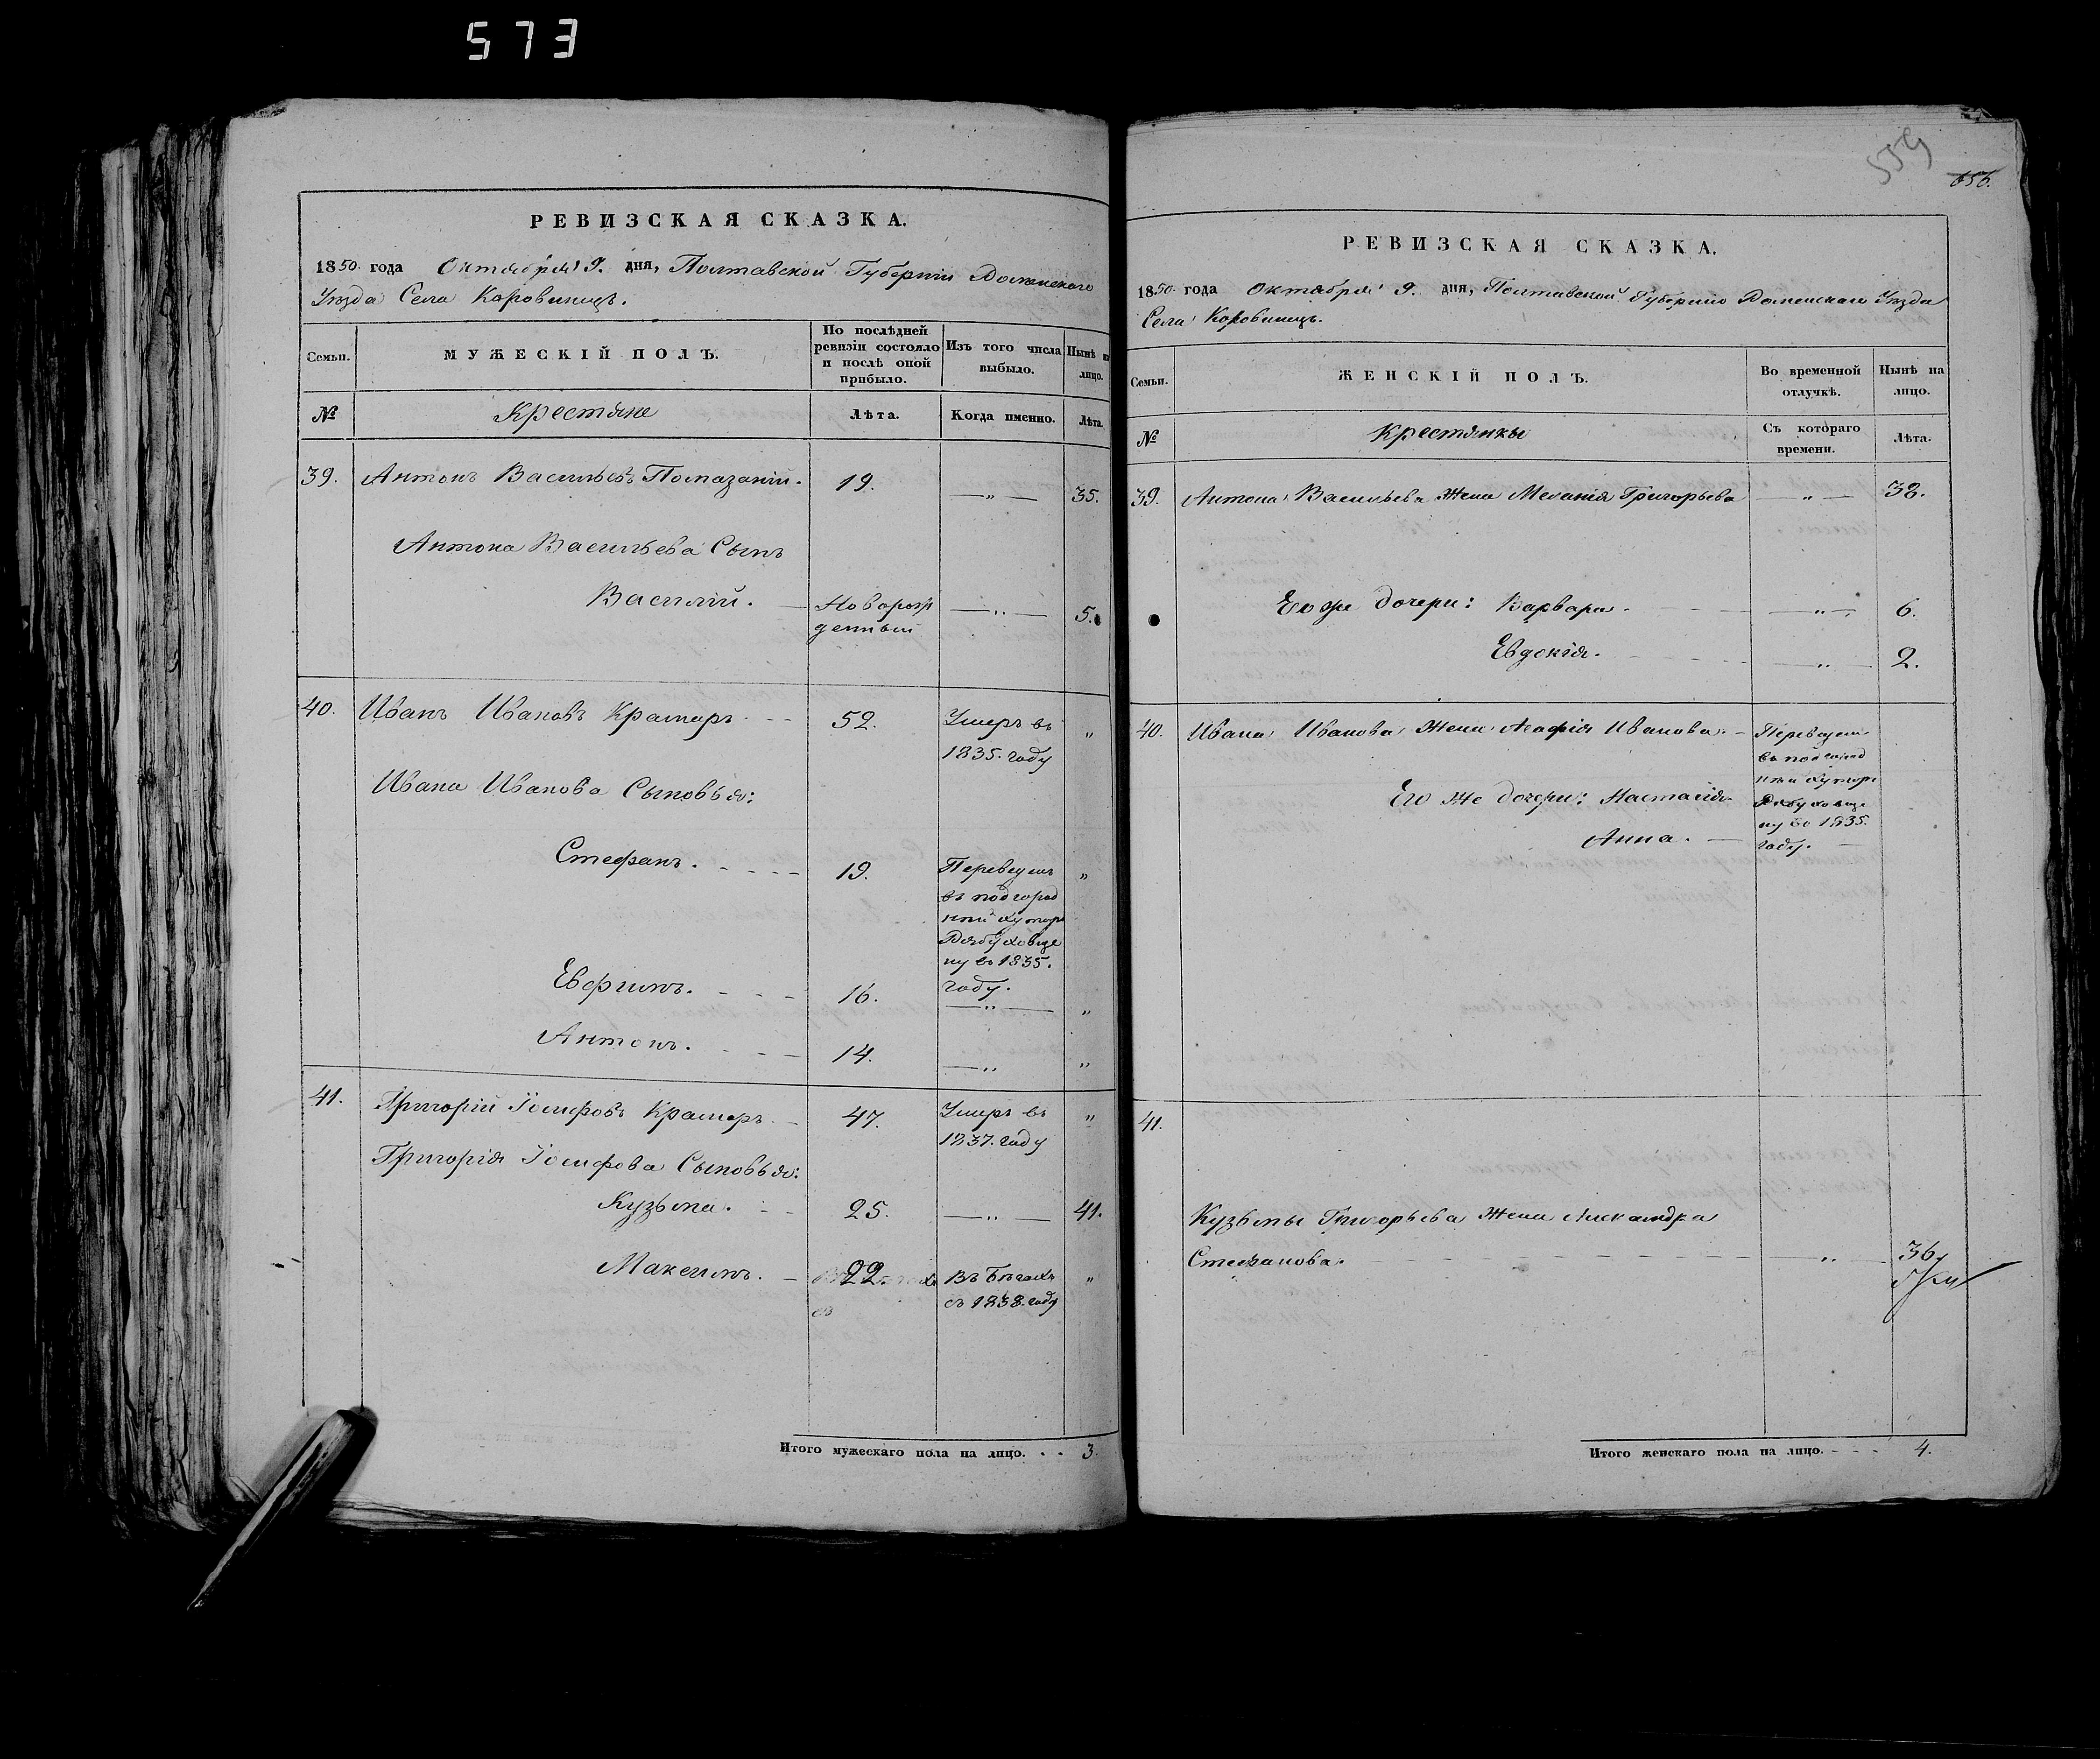 573
РЕВИЗСКАЯ СКАЗКА.
1850 года Октября 9. дня, Полтавской Губерніи Роменскаго
Уѣзда Села Коровинецъ.
Семьи.
МУЖЕСКІЙ ПОЛЪ.
По послѣдней ревизіи состояло и послѣ оной прибыло.
Изъ того числа выбыло.
Нынѣ на лицо.
№
Крестяне
Лѣта.
Когда именно.
Лѣта.
39. Антонъ Васильевъ Помазаній. 19. — „ — 35.
Антона Васильева Сынъ
Василій. — Новорож
денный — „ — 5.
40. Иванъ Ивановъ Крамаръ 52. Умеръ въ „
1835. году
Ивана Иванова Сыновья:
Стефанъ. 19. Переведенъ „
въ подгород
ній хуторъ
Рябуховще
ну въ 1835.
году.
Евфимъ. 16. — „ — „
Антонъ. 14. — „ „
41. Григорій Іосифовъ Крамаръ 47. Умеръ въ „
1837. году
Григорія Іосифова Сыновья:
Кузьма. 25. — „ — 41.
Максимъ. — 22. Въ бѣгахъ „
съ съ 1838. году
Итого мужескаго пола на лицо. 3.
559
656.
РЕВИЗСКАЯ СКАЗКА.
1850 года Октября 9. дня, Полтавской Губерніи Роменскаго Уѣзда
Села Коровинецъ.
Семьи.
ЖЕНСКІЙ ПОЛЪ.
Во временной отлучкѣ.
Нынѣ на лицо.
№
Крестянки
Съ котораго времени.
Лѣта.
39. Антона Васильева Жена Меланія Григорьева — „ — 38.
Его же дочери: Варвара. — „ — 6.
Евдокія. — „ — 2.
40. Ивана Иванова Жена Агафія Иванова. — Переведены
въ подгород
ній хуторъ
Его же дочери: Настасія Рябуховще
ну въ 1835.
Анна. — году. —
41.
Кузьмы Григорьева Жена Александра
Степанова. — „ — 36
Итого женскаго пола на лицо. 4.